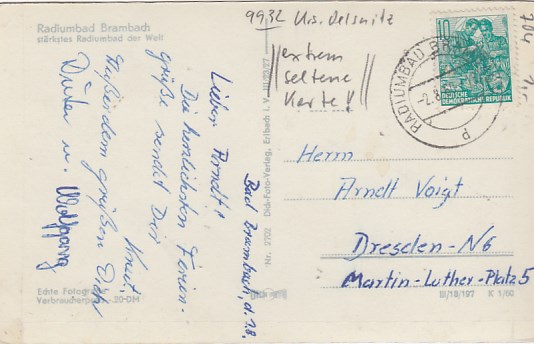 Radiumbad Brambach
stärkstes Radiumbad der Welt
9932 Krs. Oelsnitz
extrem
seltene
Karte!
10
DEUTSCHE
DEMOKRATISCHE REPUBLIK
RADIUMBAD BR
-2.8.
d
704
Bad Brambach, d. 1.8.
Lieber Arndt!
Die herzlichsten Ferien-
grüße sendet Dir
Knut.
Außerdem grüßen Dich
Dieter u. Wolfgang
Echte Fotogra
Verbraucherp -.20 DM
Nr. 2702 Dick-Foto-Verlag, Erlbach i. V. III/23/27
Herrn
Arndt Voigt
Dresden-N6
Martin-Luther-Platz 5
III/18/197 K 1/60